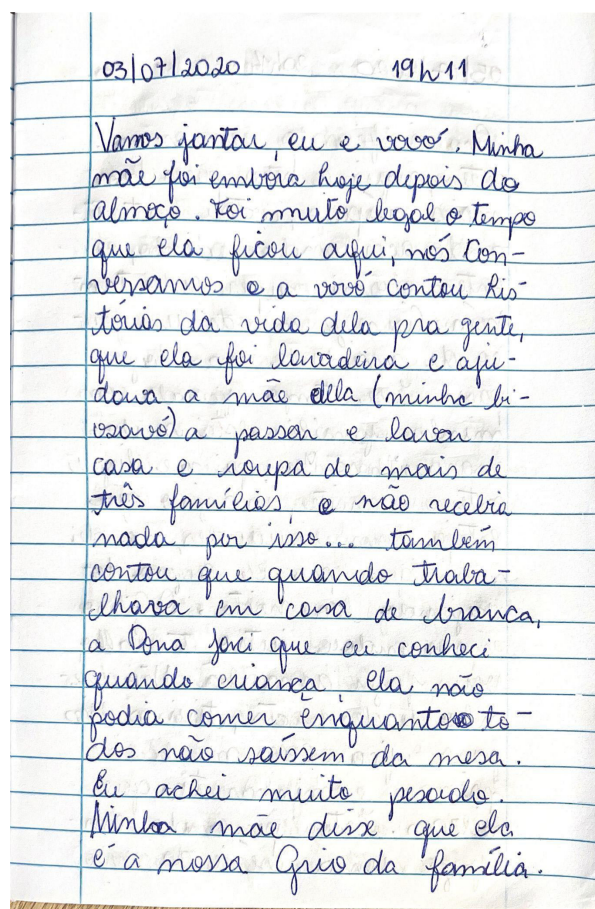 03/07/2020 19h11
Vamos jantar, eu e vovó. Minha
mãe foi embora hoje depois do
almoço. Foi muito legal o tempo
que ela ficou aqui, nós con-
versamos e a vovó contou his-
tórias da vida dela pra gente,
que ela foi lavadeira e aju-
dava a mãe dela (minha bi-
savó) a passar e lavar
casa e roupa de mais de
três famílias, e não recebia
nada por isso... também
contou que quando traba-
lhava em casa de branca,
a Dona Jaci que eu conheci
quando criança, ela não
podia comer enquanto to-
dos não saíssem da mesa.
Eu achei muito pesado.
Minha mãe disse que ela
é a nossa Griô da família.